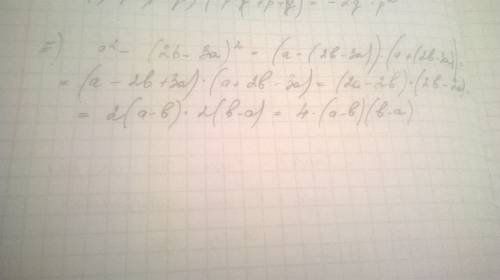 = -2q · p²
г) a² - (2b - 3a)² = (a - (2b-3a)) · (a + (2b-3a)) =
= (a - 2b + 3a) · (a + 2b - 3a) = (2a - 2b) · (2b - 2a) =
= 2(a-b) · 2(b-a) = 4 · (a-b)(b-a)